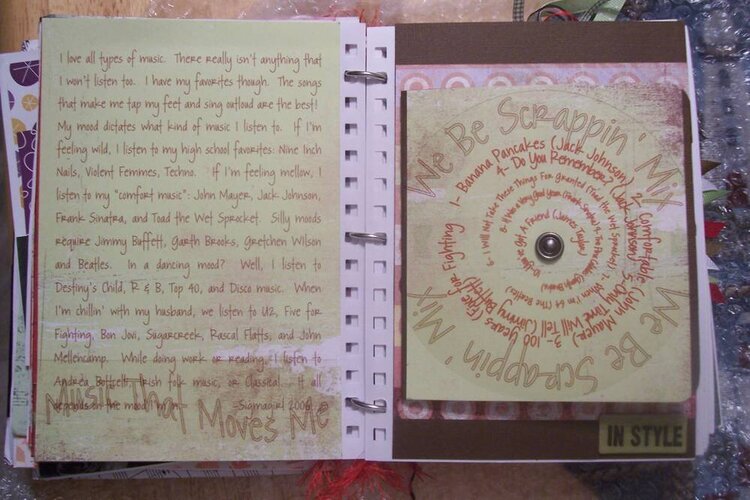 I love all types of music. There really isn't anything that
I won't listen too. I have my favorites though. The songs
that make me tap my feet and sing outloud are the best!
My mood dictates what kind of music I listen to. If I'm
feeling wild, I listen to my high school favorites: Nine Inch
Nails, Violent Femmes, Techno. If I'm feeling mellow, I
listen to my "comfort music": John Mayer, Jack Johnson,
Frank Sinatra, and Toad the Wet Sprocket. Silly moods
require Jimmy Buffett, Garth Brooks, Gretchen Wilson
and Beatles. In a dancing mood? Well, I listen to
Destiny's Child, R & B, Top 40, and Disco music. When
I'm chillin' with my husband, we listen to U2, Five for
Fighting, Bon Jovi, Sugarcreek, Rascal Flatts, and John
Mellencamp. While doing work or reading, I listen to
Andrea Bottcelli, Irish folk music, or Classical. It all
depends on the mood I'm in. -Sigmagirl
Music That Moves Me
We Be Scrappin' Mix
We Be Scrappin' Mix
1- Banana Pancakes (Jack Johnson) 2- Comfortable (John Mayer) 3- 100 Years (Five for Fighting
4- Do You Remember? (Jack Johnson) 5- Only Time Will Tell (Jimmy Buffett)
6- I Will Not Take These Things For Granted (Toad the Wet Sprocket) When I'm 64 (The Beatles)
8- It Was a Very Good Year (Frank Sinatra)
10- You've Got A Friend (James Taylor)
IN STYLE